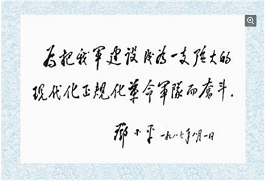 为把我軍建设成为一支强大的
现代化正規化革命軍隊而奮斗.
鄧小平 一九八七年八月一日